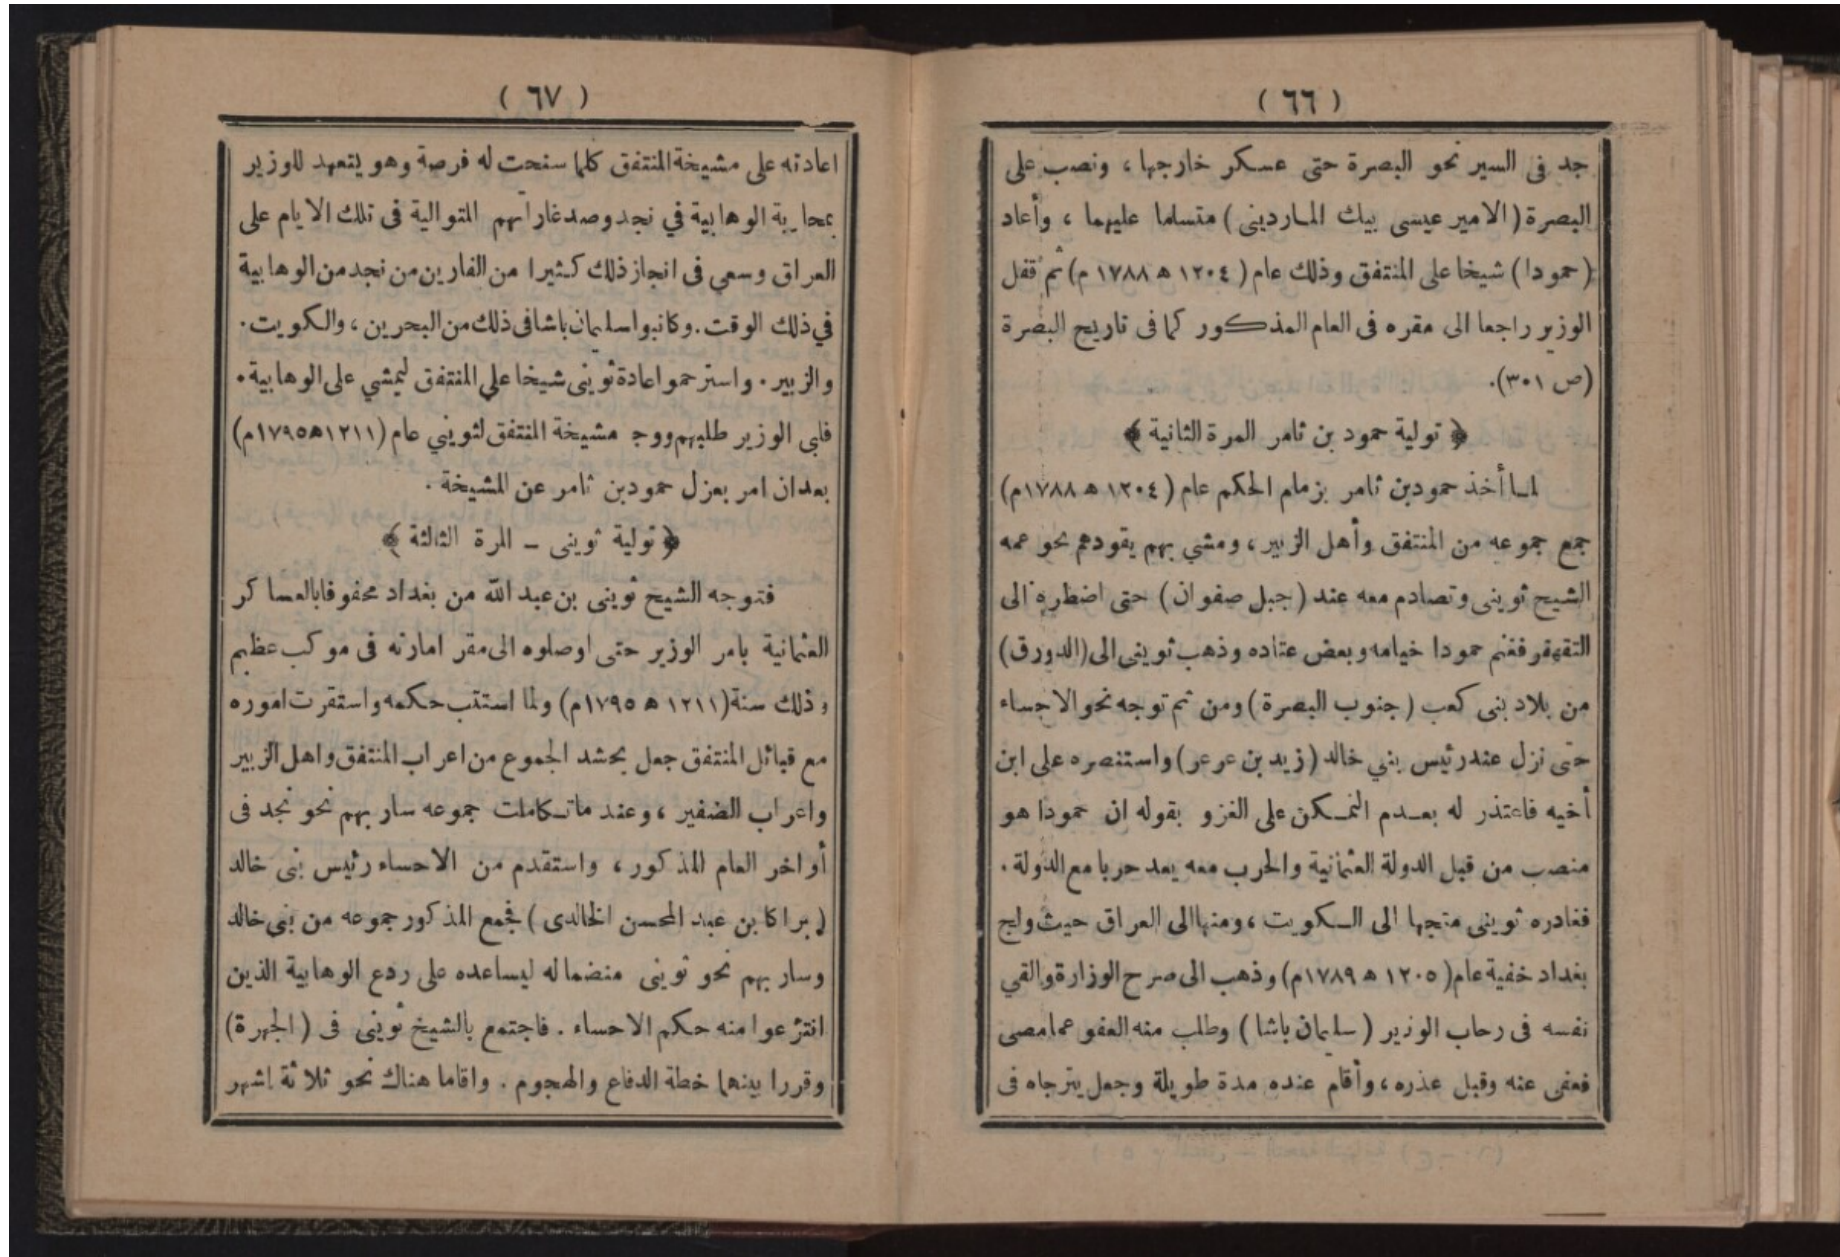 ( ٦٦ )
جد فى السير نحو البصرة حتى عسكر خارجها ، ونصب على
البصرة ( الامير عيسى بيك المارديني ) متسلما عليهما ، وأعاد
( حمودا ) شيخا على المنتفق وذلك عام ( ١٢٠٤ ه ١٧٨٨ م ) ثم قفل
الوزير راجعا الى مقره فى العام المذكور كما فى تاريخ البصرة
(ص ٣٠١).
﴿ تولية حمود بن ثامر المرة الثانية ﴾
لما أخذ حمود بن ثامر بزمام الحكم عام ( ١٢٠٤ ه ١٧٨٨م )
جمع جموعه من المنتفق وأهل الزبير ، ومشي بهم يقودهم نحو عمه
الشيخ ثوينى وتصادم معه عند ( جبل صفوان ) حتى اضطره الى
التقهقر فغنم حمودا خيامه وبعض عتاده وذهب ثوينى الى (الدورق)
من بلاد بنى كعب ( جنوب البصرة ) ومن ثم توجه نحو الاحساء
حتى نزل عند رئيس بني خالد ( زيد بن عرعر ) واستنصره على ابن
أخيه فاعتذر له بعدم التمكن على الغزو بقوله ان حمودا هو
منصب من قبل الدولة العثمانية والحرب معه يعد حربا مع الدولة .
فغادره ثوينى متجها الى الكويت ، ومنها الى العراق حيث ولج
بغداد خفية عام ( ١٢٠٥ ه ١٧٨٩م ) وذهب الى صرح الوزارة والقي
نفسه فى رحاب الوزير ( سليمان باشا ) وطلب منه العفو عما مضى
فعفى عنه وقبل عذره ، وأقام عنده مدة طويلة وجعل يترجاه فى
( ٦٧ )
اعادته على مشيخة المنتفق كلما سنحت له فرصة وهو يتعهد للوزير
بمحاربة الوهابية في نجد وصد غاراتهم المتوالية فى تلك الايام على
العراق وسعي فى انجاز ذلك كثيرا من الفارين من نجد من الوهابية
في ذلك الوقت . وكاتبوا سليمان باشا فى ذلك من البحرين ، والكويت .
والزبير . واسترحموا اعادة ثوينى شيخا على المنتفق ليمشي على الوهابية .
فلبى الوزير طلبهم ووجه مشيخة المنتفق لثويني عام ( ١٢١١ه١٧٩٥م )
بعد ان امر بعزل حمود بن ثامر عن المشيخة .
﴿ تولية ثوينى – المرة الثالثة ﴾
فتوجه الشيخ ثوينى بن عبد الله من بغداد محفوفا بالعساكر
العثمانية بامر الوزير حتى اوصلوه الى مقر امارته فى موكب عظيم
وذلك سنة ( ١٢١١ ه ١٧٩٥م ) ولما استتب حكمه واستقرت اموره
مع قبائل المنتفق جعل يحشد الجموع من اعراب المنتفق واهل الزبير
واعراب الضفير ، وعند ما تكاملت جموعه سار بهم نحو نجد فى
أواخر العام المذكور ، واستقدم من الاحساء رئيس بنى خالد
( براكا بن عبد المحسن الخالدى ) فجمع المذكور جموعه من بني خالد
وسار بهم نحو ثوينى منضما له ليساعده على ردع الوهابية الذين
انتزعوا منه حكم الاحساء . فاجتمع بالشيخ ثوينى فى ( الجهرة )
وقررا بينهما خطة الدفاع والهجوم . واقاما هناك نحو ثلاثة اشهر